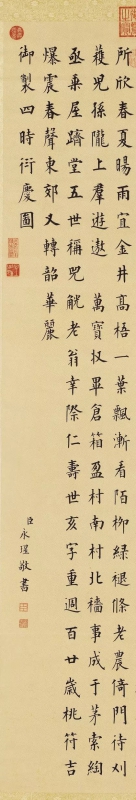 所欣春夏暘雨宜金井高梧一葉飄漸看陌柳綠褪條老農倚門待刈
穫兒孫隴上群遊遨　萬寶杈畢倉箱盈村南村北穡事成于茅索綯
亟乘屋躋堂五世稱兕觥老翁幸際仁壽世亥字重週百廿歲桃符吉
爆震春聲東郊又轉韶華麗
御製四時衍慶圖
臣永瑆敬書